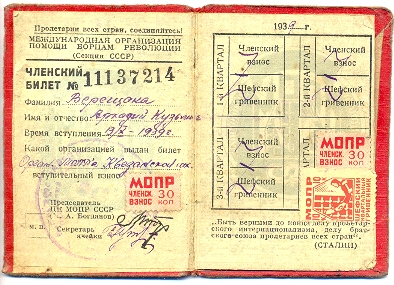 Пролетарии всех стран, соединяйтесь!
МЕЖДУНАРОДНАЯ ОРГАНИЗАЦИЯ
ПОМОЩИ БОРЦАМ РЕВОЛЮЦИИ
(Секция СССР)
ЧЛЕНСКИЙ
БИЛЕТ № 11137214
Фамилия Верещака
Имя и отчество Аркадий Кузьмич
Время вступления 1939 г.
Какой организацией выдан билет
вступительный взнос
МОПР
ЧЛЕНСК. 30
ВЗНОС КОП
Председатель
ЦК МОПР СССР
А. Богданов)
м. п.
Секретарь
ячейки
1939 г.
1-й КВАРТАЛ
Членский
взнос
Шефский
гривенник
2-й КВАРТАЛ
Членский
взнос
Шефский
гривенник
3-й КВАРТАЛ
Членский
взнос
Шефский
гривенник
АРТАЛ
МОПР
ЧЛЕНСК. 30
ВЗНОС КОП
МОПР
ШЕФСКИЙ
ГРИВЕННИК
„Быть верными до конца делу пролетарского интернационализма, делу братского союза пролетариев всех стран".
(СТАЛИН)